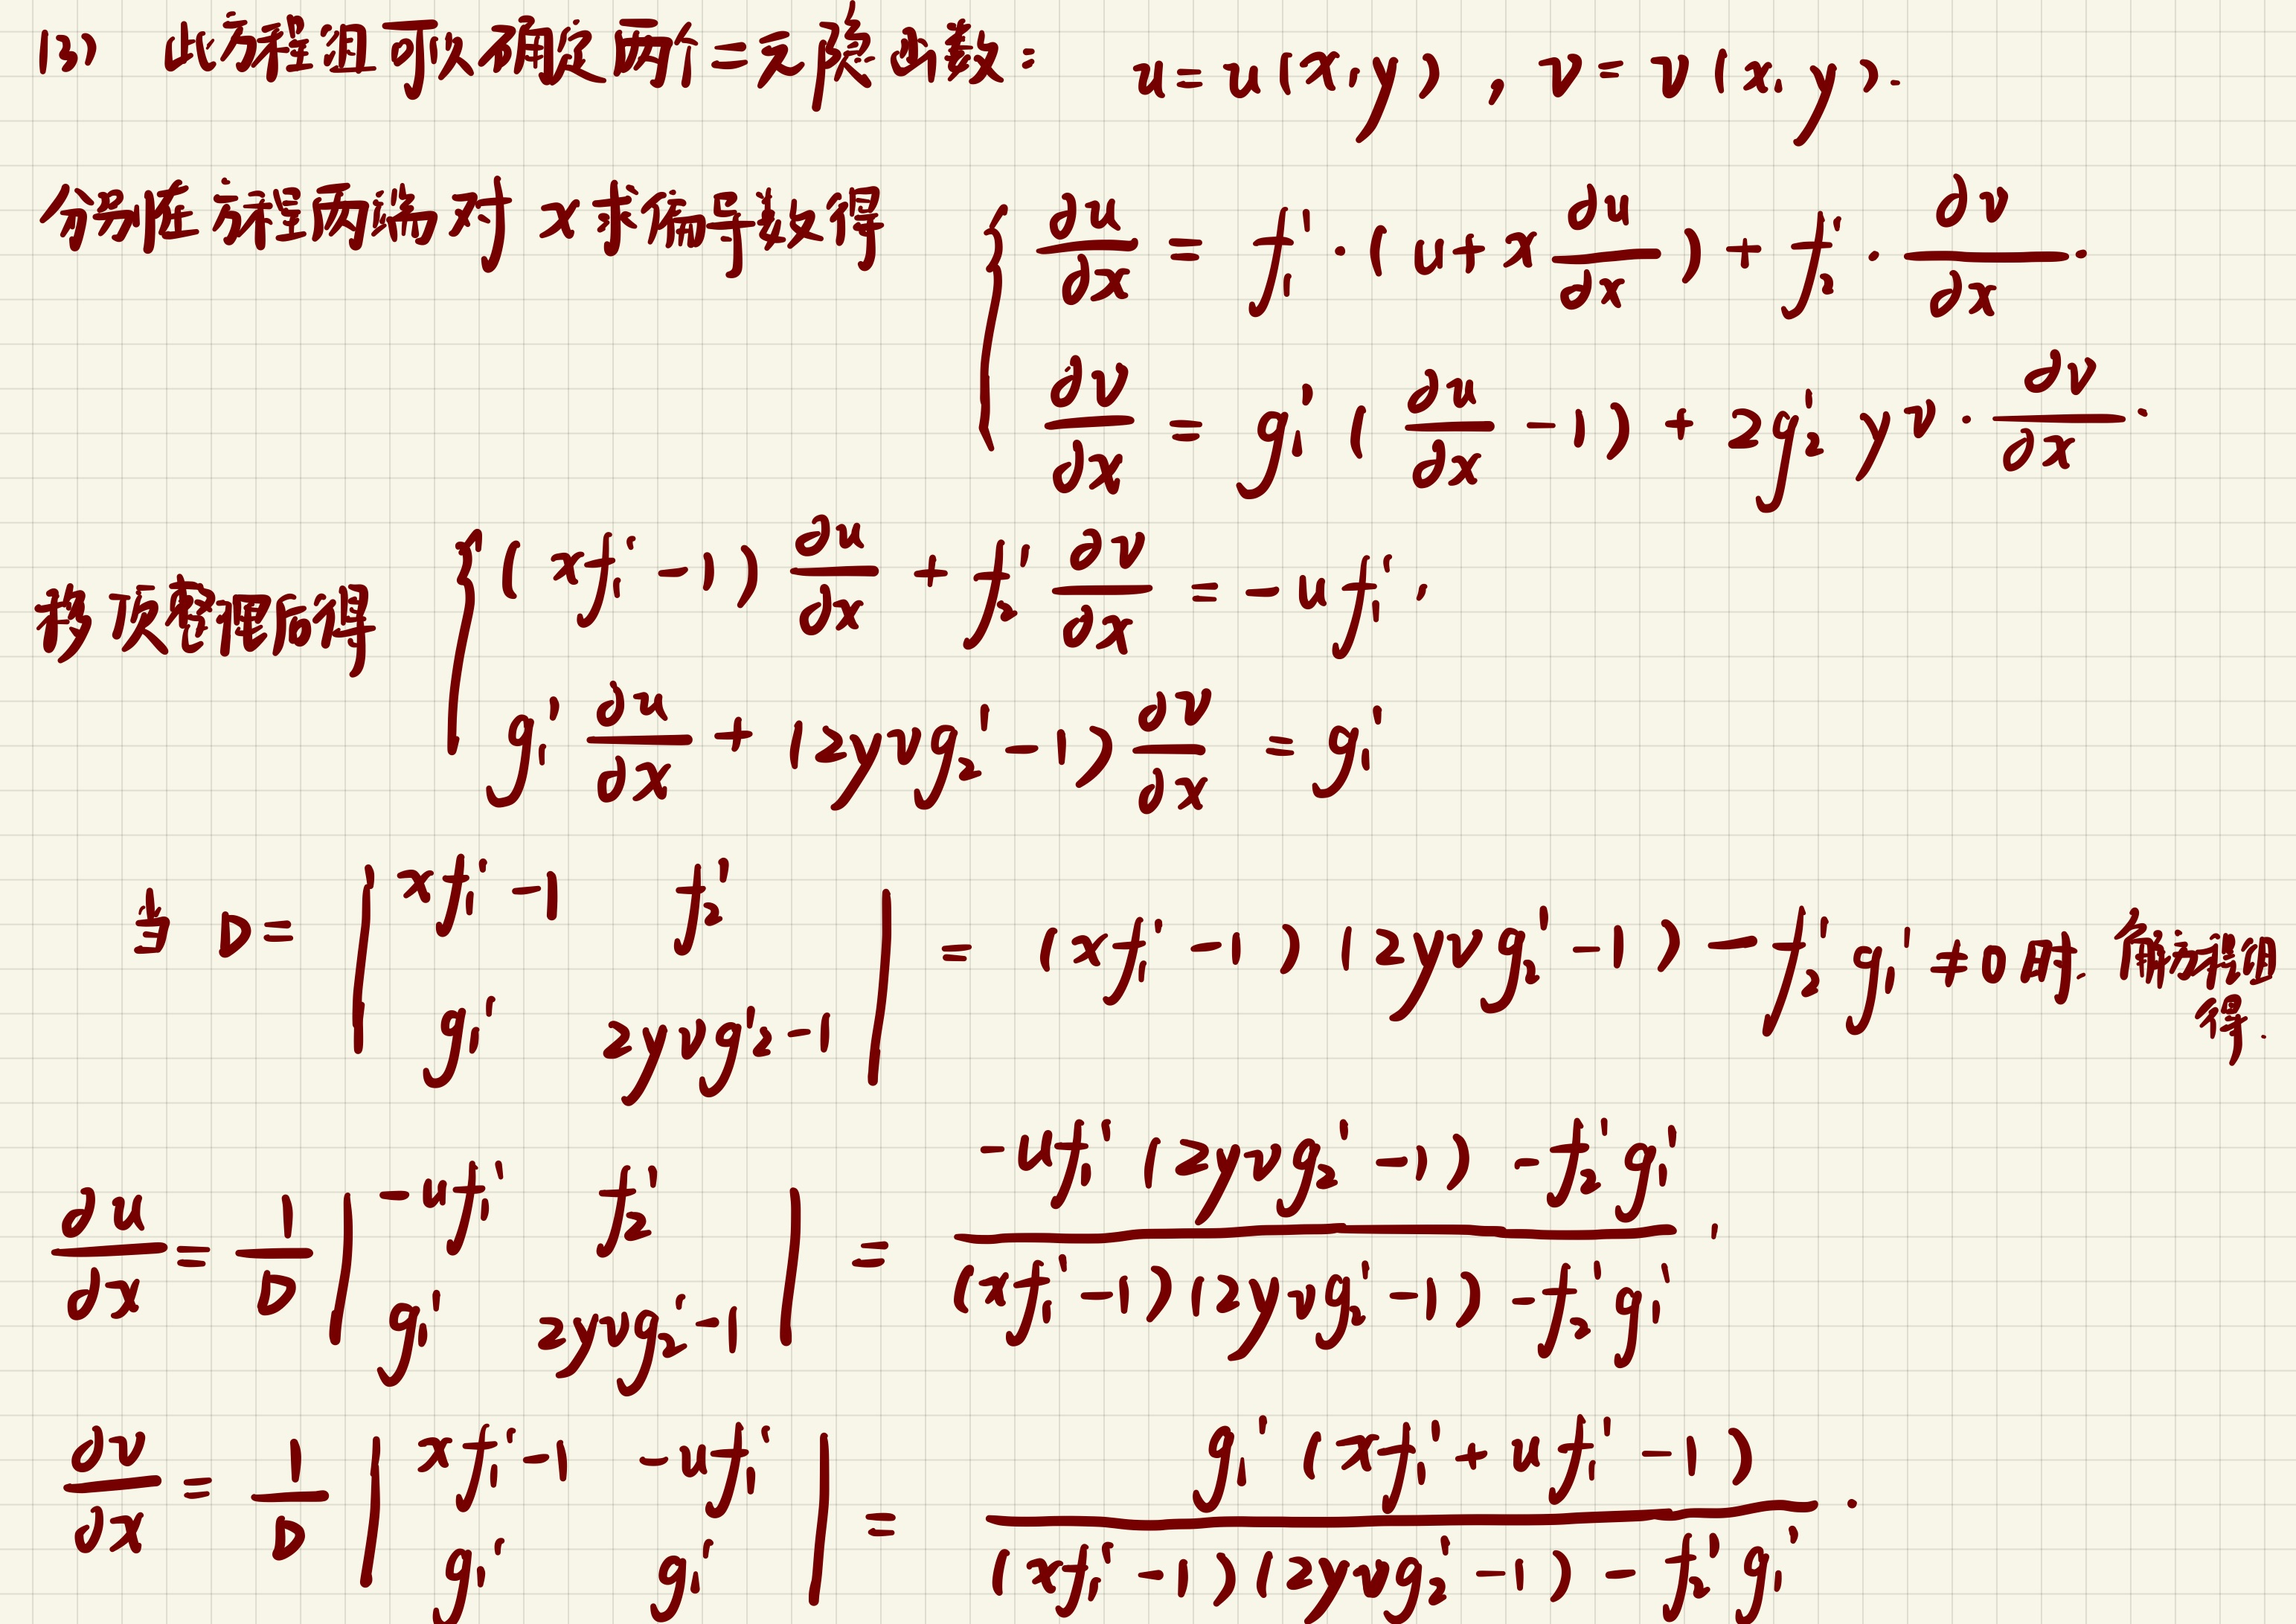 (3) 此方程组可以确定两个二元隐函数: u=u(x,y), v=v(x,y).
分别在方程两端对 x 求偏导数得 { ∂u/∂x = f₁'·(u+x ∂u/∂x) + f₂'·∂v/∂x.
∂v/∂x = g₁'(∂u/∂x −1) + 2g₂' y v·∂v/∂x.
移项整理后得 { (xf₁'−1) ∂u/∂x + f₂' ∂v/∂x = −uf₁'.
g₁' ∂u/∂x + (2yvg₂'−1) ∂v/∂x = g₁'
当 D = | xf₁'−1 f₂' ; g₁' 2yvg₂'−1 | = (xf₁'−1)(2yvg₂'−1) − f₂'g₁' ≠ 0 时. 解方程组得.
∂u/∂x = 1/D | −uf₁' f₂' ; g₁' 2yvg₂'−1 | = (−uf₁'(2yvg₂'−1) − f₂'g₁') / ((xf₁'−1)(2yvg₂'−1) − f₂'g₁'),
∂v/∂x = 1/D | xf₁'−1 −uf₁' ; g₁' g₁' | = g₁'(xf₁'+uf₁'−1) / ((xf₁'−1)(2yvg₂'−1) − f₂'g₁').